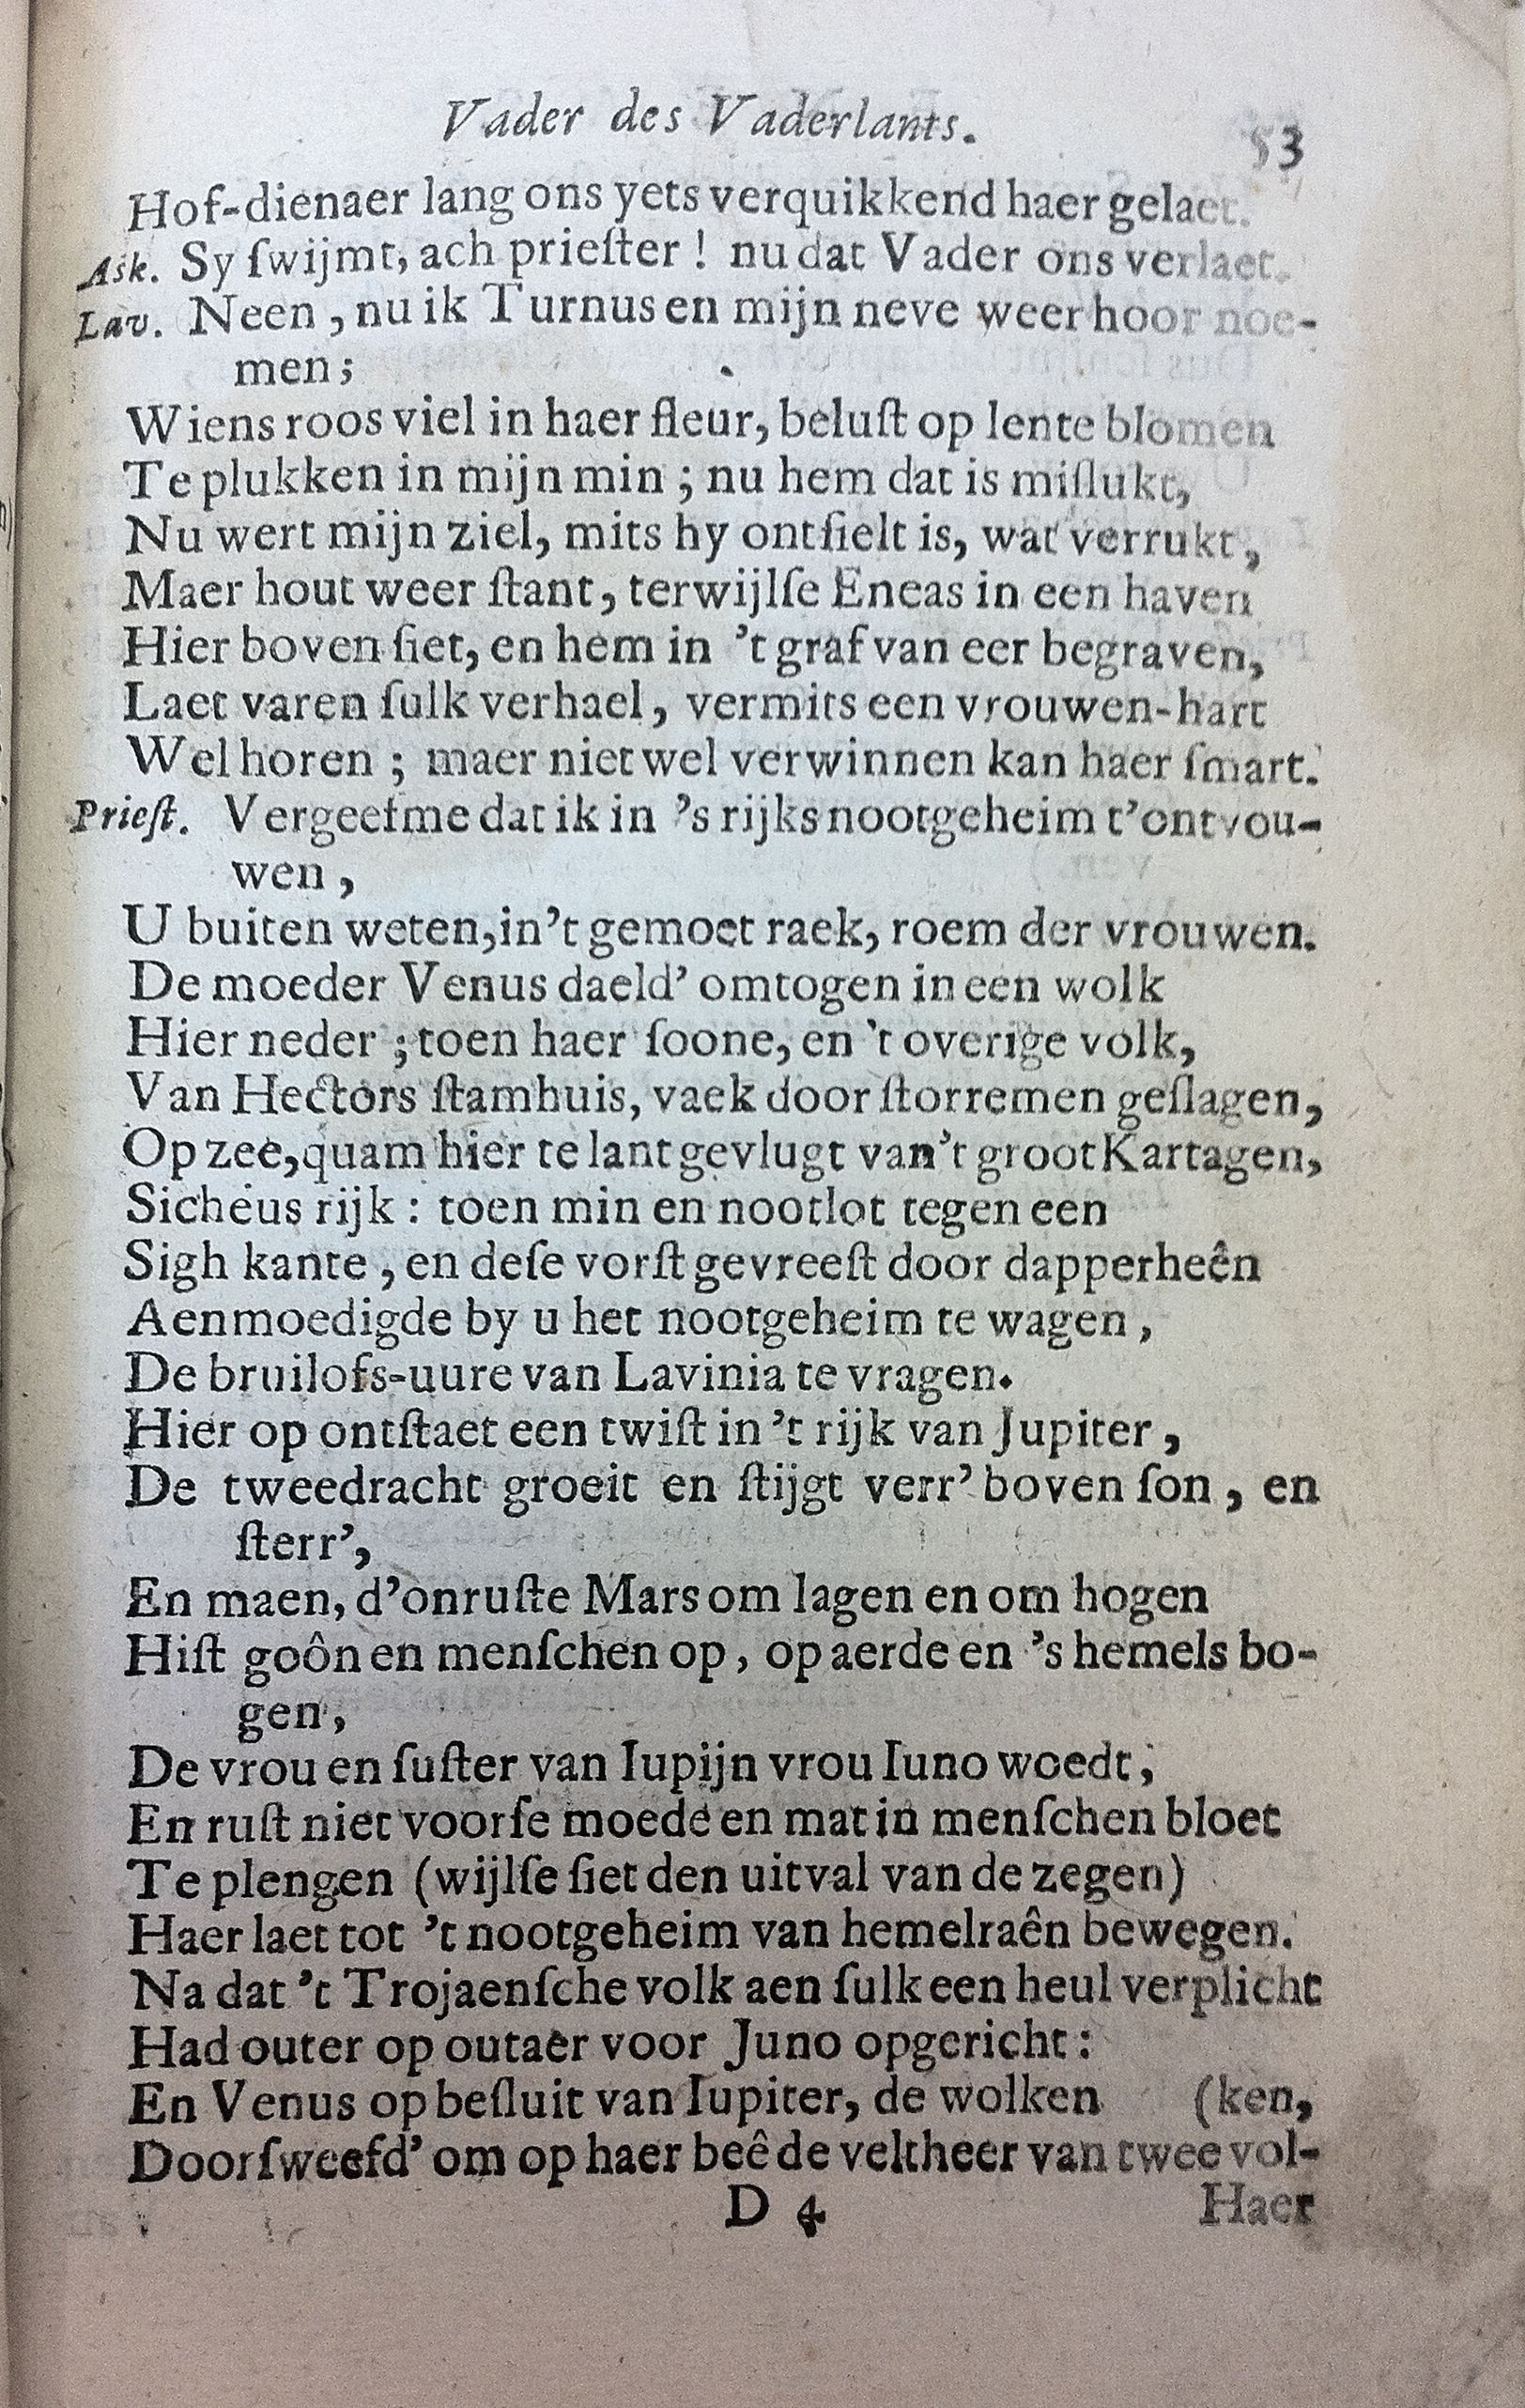 Vader des Vaderlants. 53
Hof-dienaer lang ons yets verquikkend haer gelaet.
Ask. Sy ſwijmt, ach prieſter ! nu dat Vader ons verlaet.
Lav. Neen , nu ik Turnus en mijn neve weer hoor noe-
men ;
Wiens roos viel in haer fleur, beluſt op lente blomen
Te plukken in mijn min ; nu hem dat is miſlukt,
Nu wert mijn ziel, mits hy ontſielt is, wat verrukt ,
Maer hout weer ſtant , terwijlſe Eneas in een haven
Hier boven ſiet, en hem in 't graf van eer begraven,
Laet varen ſulk verhael , vermits een vrouwen-hart
Wel horen ; maer niet wel verwinnen kan haer ſmart.
Prieſt. Vergeefme dat ik in 's rijks nootgeheim t'ontvou-
wen ,
U buiten weten,in't gemoet raek, roem der vrouwen.
De moeder Venus daeld' omtogen in een wolk
Hier neder ; toen haer ſoone, en 't overige volk,
Van Hectors ſtamhuis, vaek door ſtorremen geſlagen,
Op zee,quam hier te lant gevlugt van't groot Kartagen,
Sicheus rijk : toen min en nootlot tegen een
Sigh kante , en deſe vorſt gevreeſt door dapperheên
Aenmoedigde by u het nootgeheim te wagen ,
De bruilofs-uure van Lavinia te vragen.
Hier op ontſtaet een twiſt in 't rijk van Jupiter ,
De tweedracht groeit en ſtijgt verr' boven ſon , en
ſterr',
En maen, d'onruſte Mars om lagen en om hogen
Hiſt goôn en menſchen op , op aerde en 's hemels bo-
gen ,
De vrou en ſuſter van Iupijn vrou Iuno woedt ,
En ruſt niet voorſe moede en mat in menſchen bloet
Te plengen (wijlſe ſiet den uitval van de zegen)
Haer laet tot 't nootgeheim van hemelraên bewegen.
Na dat 't Trojaenſche volk aen ſulk een heul verplicht
Had outer op outaer voor Juno opgericht :
En Venus op beſluit van Iupiter, de wolken (ken,
Doorſweefd' om op haer beê de veltheer van twee vol-
D 4 Haer